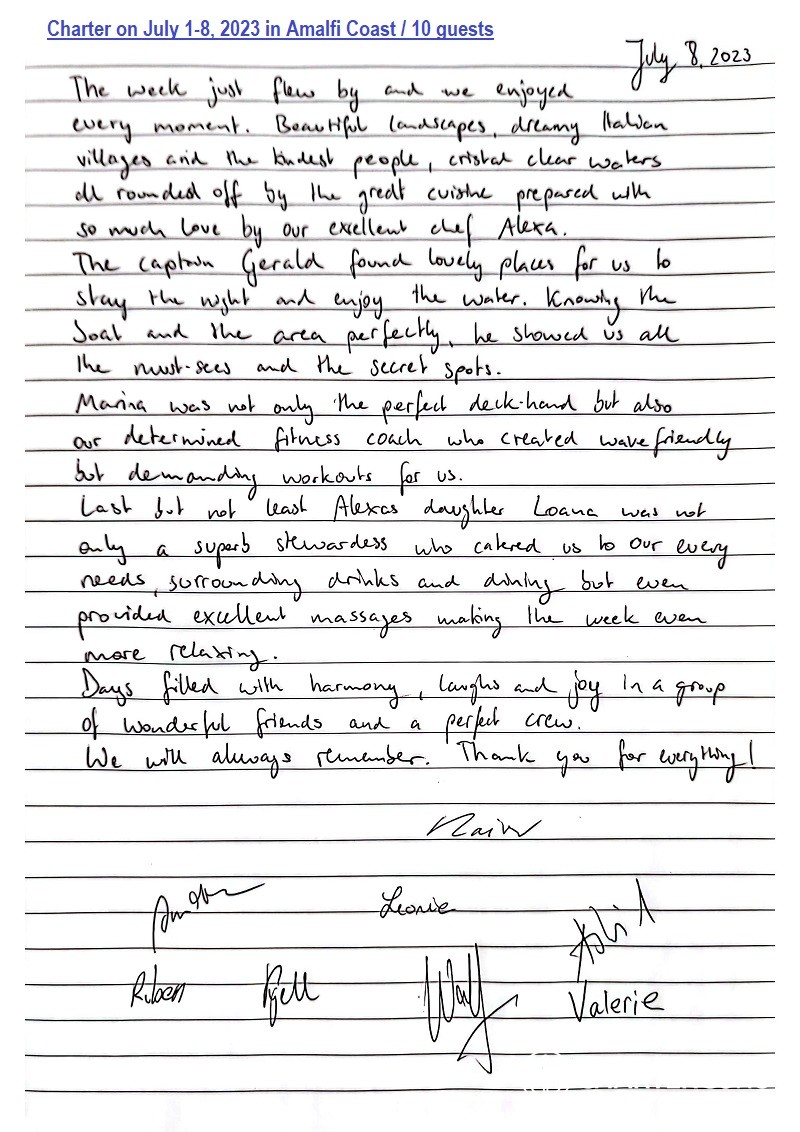 Charter on July 1-8, 2023 in Amalfi Coast / 10 guests
July 8, 2023
The week just flew by and we enjoyed
every moment. Beautiful landscapes, dreamy Italian
villages and the kindest people, cristal clear waters
all rounded off by the great cuisine prepared with
so much love by our excellent chef Alexa.
The captain Gerald found lovely places for us to
stay the night and enjoy the water. Knowing the
boat and the area perfectly, he showed us all
the must-sees and the secret spots.
Marina was not only the perfect deck-hand but also
our determined fitness coach who created wave friendly
but demanding workouts for us.
Last but not least Alexas daughter Loana was not
only a superb stewardess who catered us to our every
needs, surrounding drinks and dining but even
provided excellent massages making the week even
more relaxing.
Days filled with harmony, laughs and joy in a group
of wonderful friends and a perfect crew.
We will always remember. Thank you for everything!
Leonie
Ruben Kjell Valerie